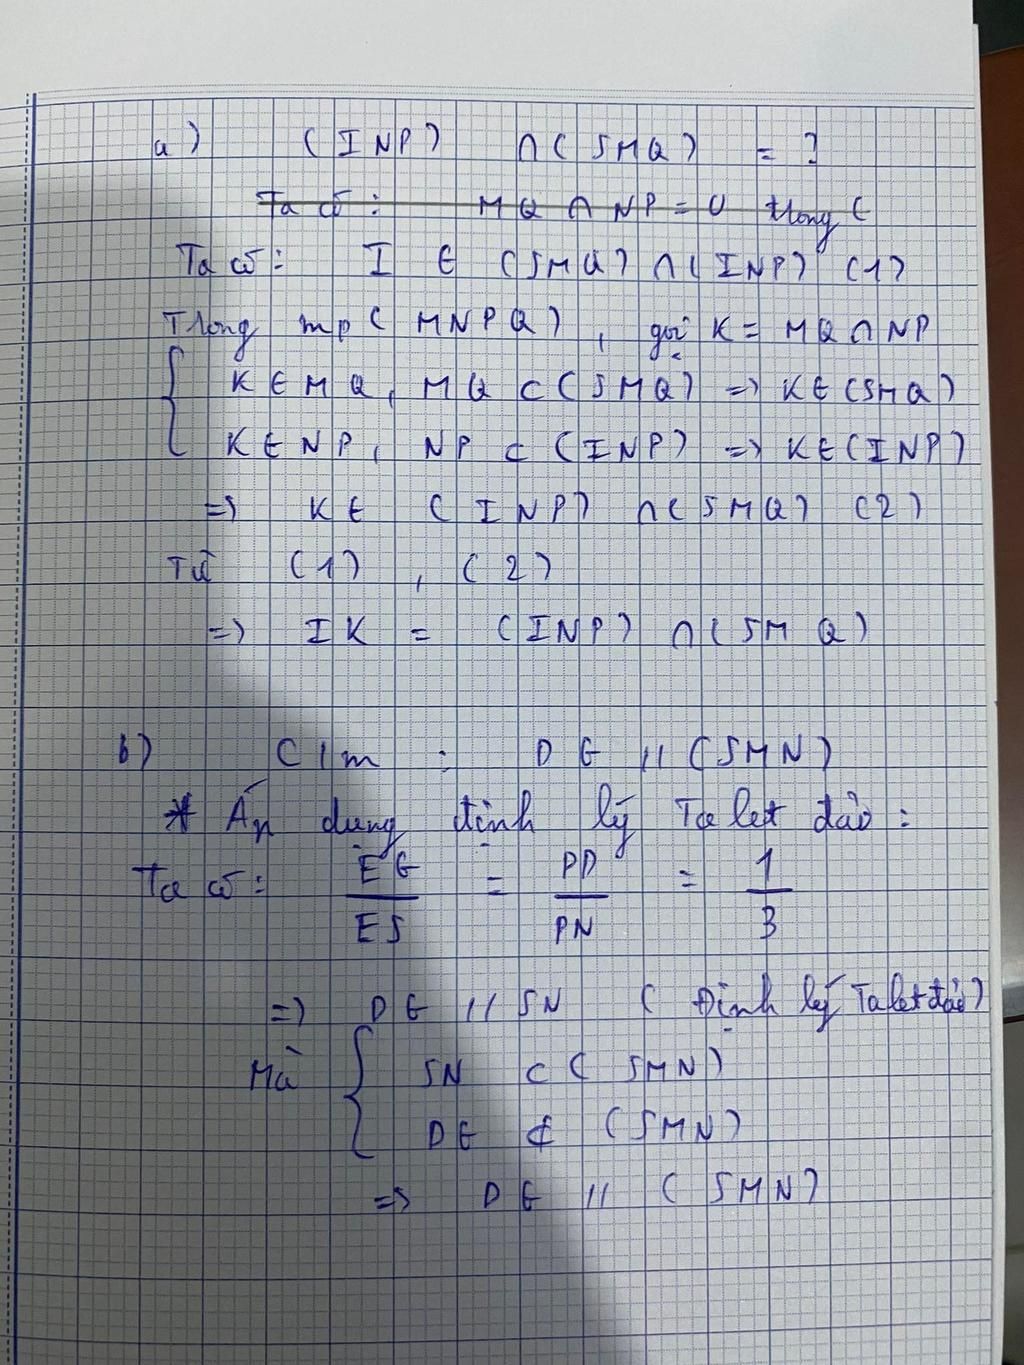 a) (INP) ∩ (SMQ) = ?
Ta có: MQ ∩ NP = U trong (
Ta có: I ∈ (SMQ) ∩ (INP) (1)
Trong mp (MNPQ), gọi K = MQ ∩ NP
{ K ∈ MQ, MQ ⊂ (SMQ) => K ∈ (SMQ)
K ∈ NP, NP ⊂ (INP) => K ∈ (INP)
=> K ∈ (INP) ∩ (SMQ) (2)
Từ (1), (2)
=> IK = (INP) ∩ (SMQ)
b) C/m : DG // (SMN)
* Áp dụng định lý Talet đảo:
Ta có: EG/ES = PD/PN = 1/3
=> DG // SN (Định lý Talet đảo)
Mà { SN ⊂ (SMN)
DG ⊄ (SMN)
=> DG // (SMN)